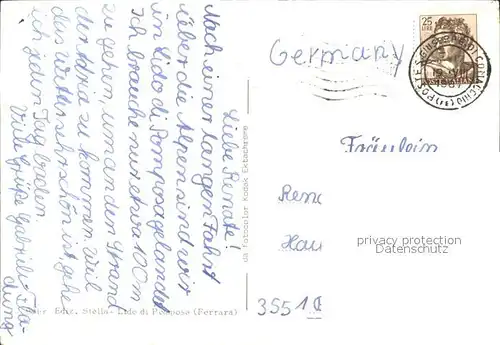 Liebe Renate!
Nach einer langen Fahrt
über die Alpen sind wir
in Lido di Pomposa gelandet
Ich brauche nur etwa 100 m
zu gehen, um an den Strand
der Adria zu kommen. Weil
das Wetter sehr schön ist, gehe
ich jeden Tag baden.
Viele Grüße Gabriele
Ediz. Stella - Lido di Pomposa (Ferrara)
da Fotocolor Kodak Ektachrome
Germany
25
LIRE
COMACCHIO
POSTE
Fräulein
Rena
Hau
3551
privacy protection
Datenschutz